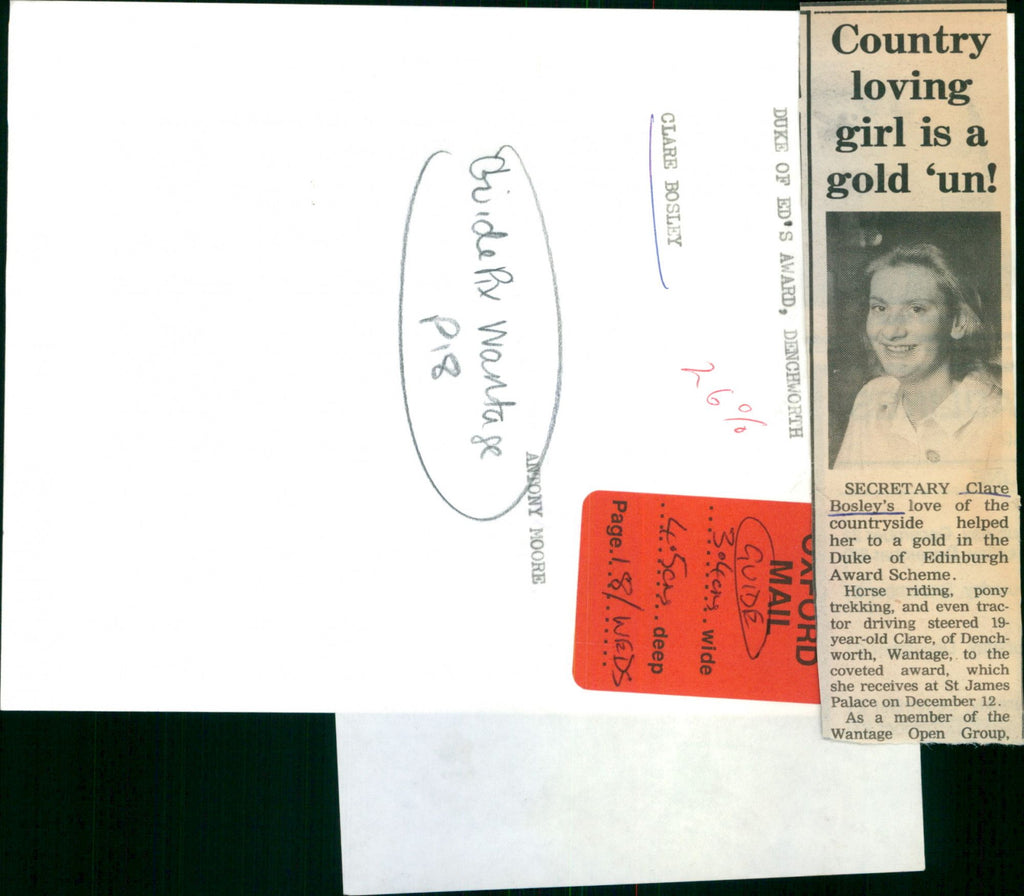 Country
loving
girl is a
gold ‘un!
SECRETARY Clare
Bosley's love of the
countryside helped
her to a gold in the
Duke of Edinburgh
Award Scheme.
Horse riding, pony
trekking, and even trac-
tor driving steered 19-
year-old Clare, of Dench-
worth, Wantage, to the
coveted award, which
she receives at St James
Palace on December 12.
As a member of the
Wantage Open Group,
DUKE OF ED'S AWARD, DENCHWORTH
CLARE BOSLEY
26%
Guide Px Wantage
P18
ANTONY MOORE
OXFORD
MAIL
GUIDE
3.04cms wide
4.5cms deep
Page 18/WEDS